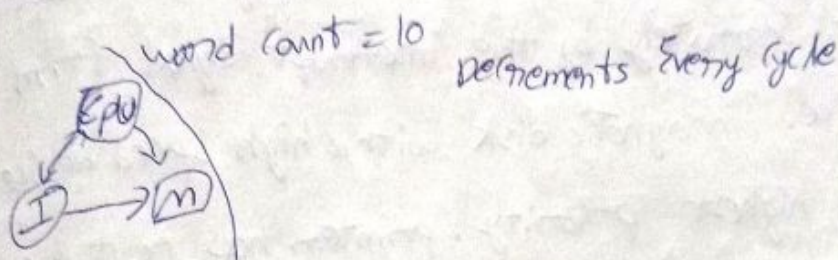 word count = 10
Decrements Every cycle
CPU
I
M